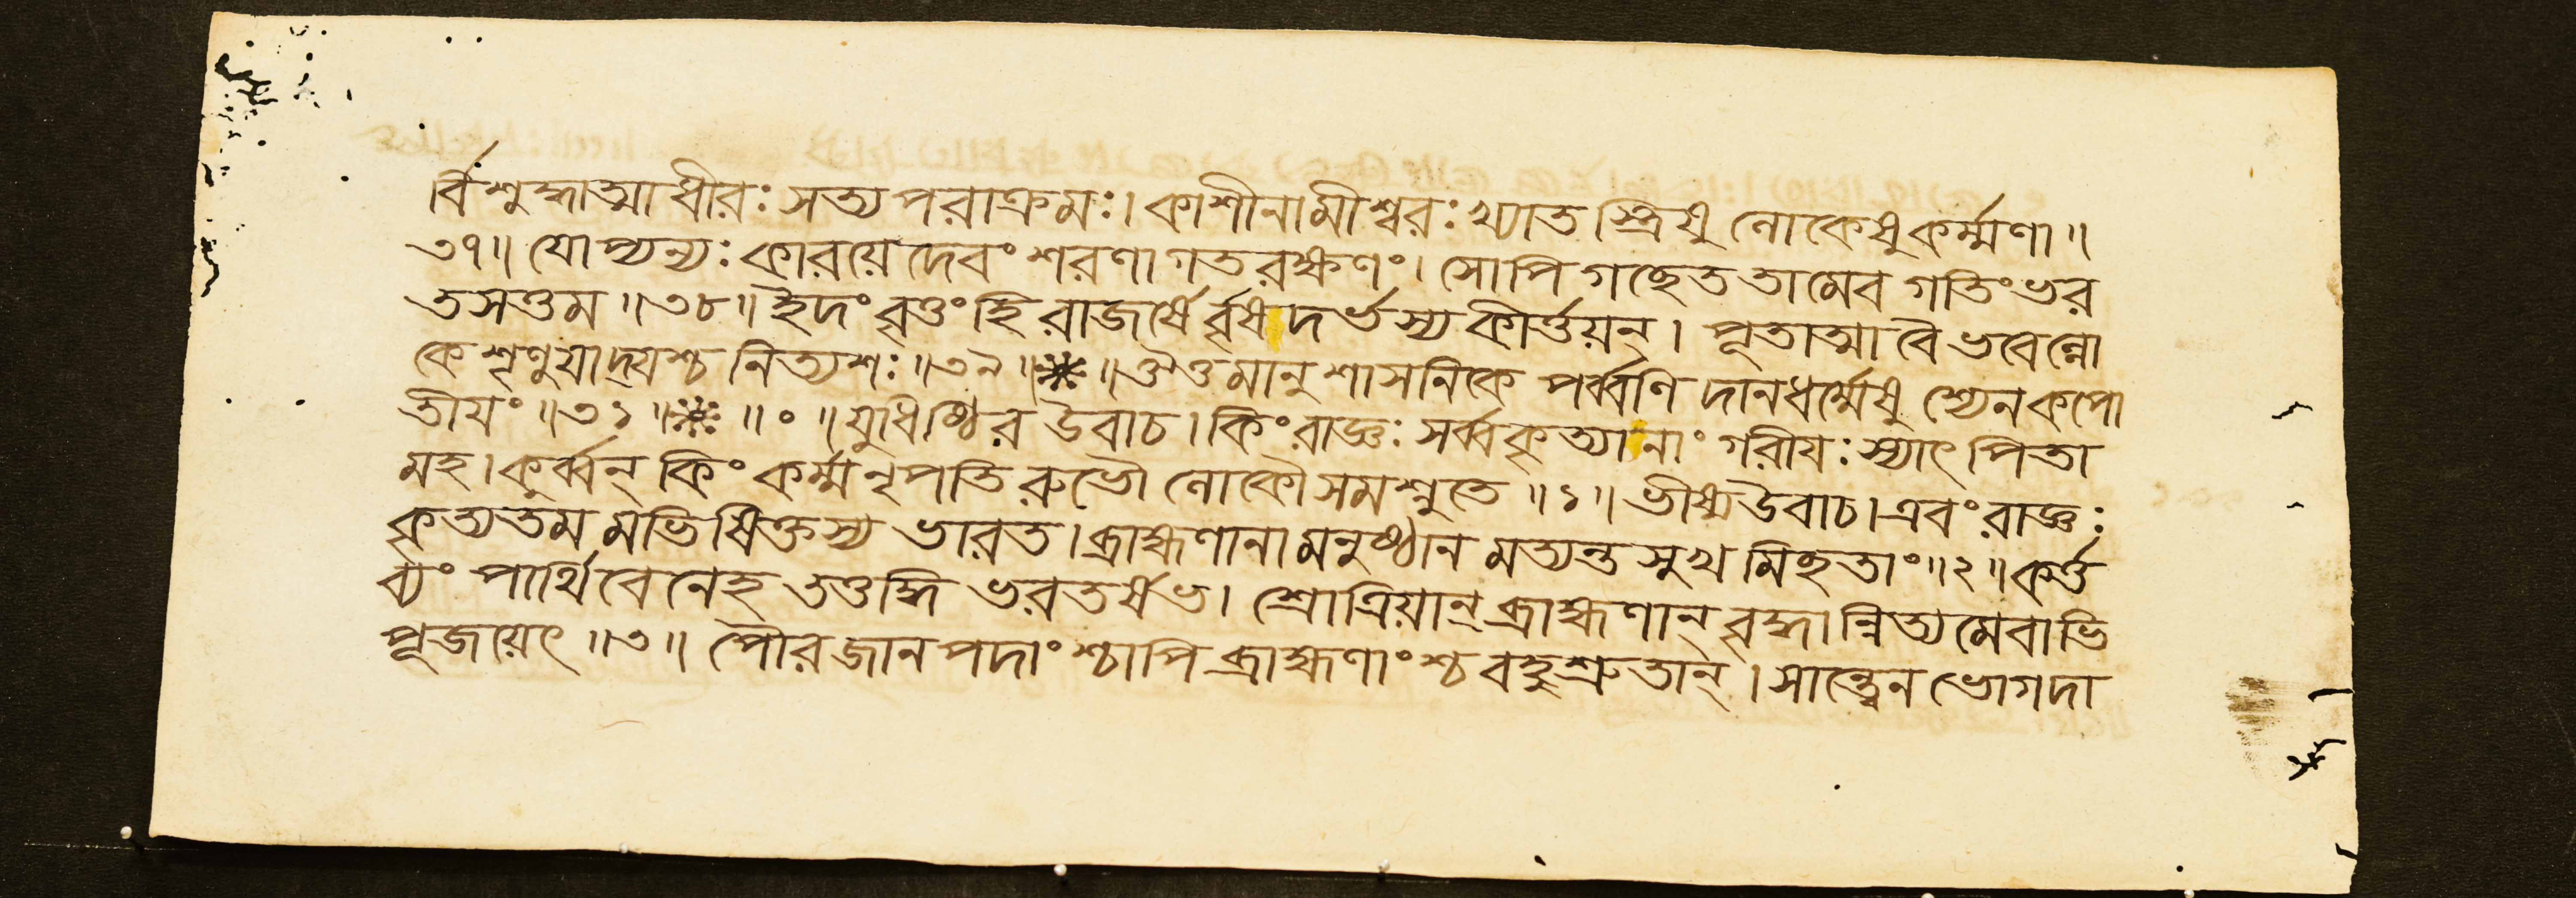 র্বিশুদ্ধাত্মা ধীরঃ সত্যপরাক্রমঃ। কাশীনামীশ্বরঃ খ্যাতস্ত্রিষু লোকেষু কর্ম্মণা॥
৩৭॥ যোপ্যন্যঃ কারয়েদেবং শরণাগতরক্ষণং। সোপি গছেত তামেব গতিং ভর
তসত্তম॥৩৮॥ ইদং বৃত্তং হি রাজর্ষের্বৃষদর্ভস্য কীর্ত্তয়ন্। পূতাত্মা বৈ ভবেল্লো
কে শৃণুযাদ্যশ্চ নিত্যশঃ॥৩৯॥ ॥ ঔত্তমানুশাসনিকে পর্ব্বণি দানধর্ম্মেষু শ্যেনকপো
তীযং॥৩১॥ ॥০॥ যুধিষ্ঠির উবাচ। কিং রাজ্ঞঃ সর্ব্বকৃত্যানাং গরীযঃ স্যাৎ পিতা
মহ। কুর্ব্বন্ কিং কর্ম্ম নৃপতিরুভৌ লোকৌ সমশ্নুতে॥১॥ ভীষ্ম উবাচ। এবং রাজ্ঞঃ
কৃত্যতমমভিষিক্তস্য ভারত। ব্রাহ্মণানামনুষ্ঠানমত্যন্তসুখমিহতাং॥২॥ কর্ত্ত
ব্যং পার্থিবেনেহ তত্তদ্ধি ভরতর্ষভ। শ্রোত্রিয়ান্ ব্রাহ্মণান্ বৃদ্ধান্নিত্যমেবাভি
পূজয়েৎ॥৩॥ পৌরজানপদাংশ্চাপি ব্রাহ্মণাংশ্চ বহুশ্রুতান্। সান্ত্বেন ভোগদা